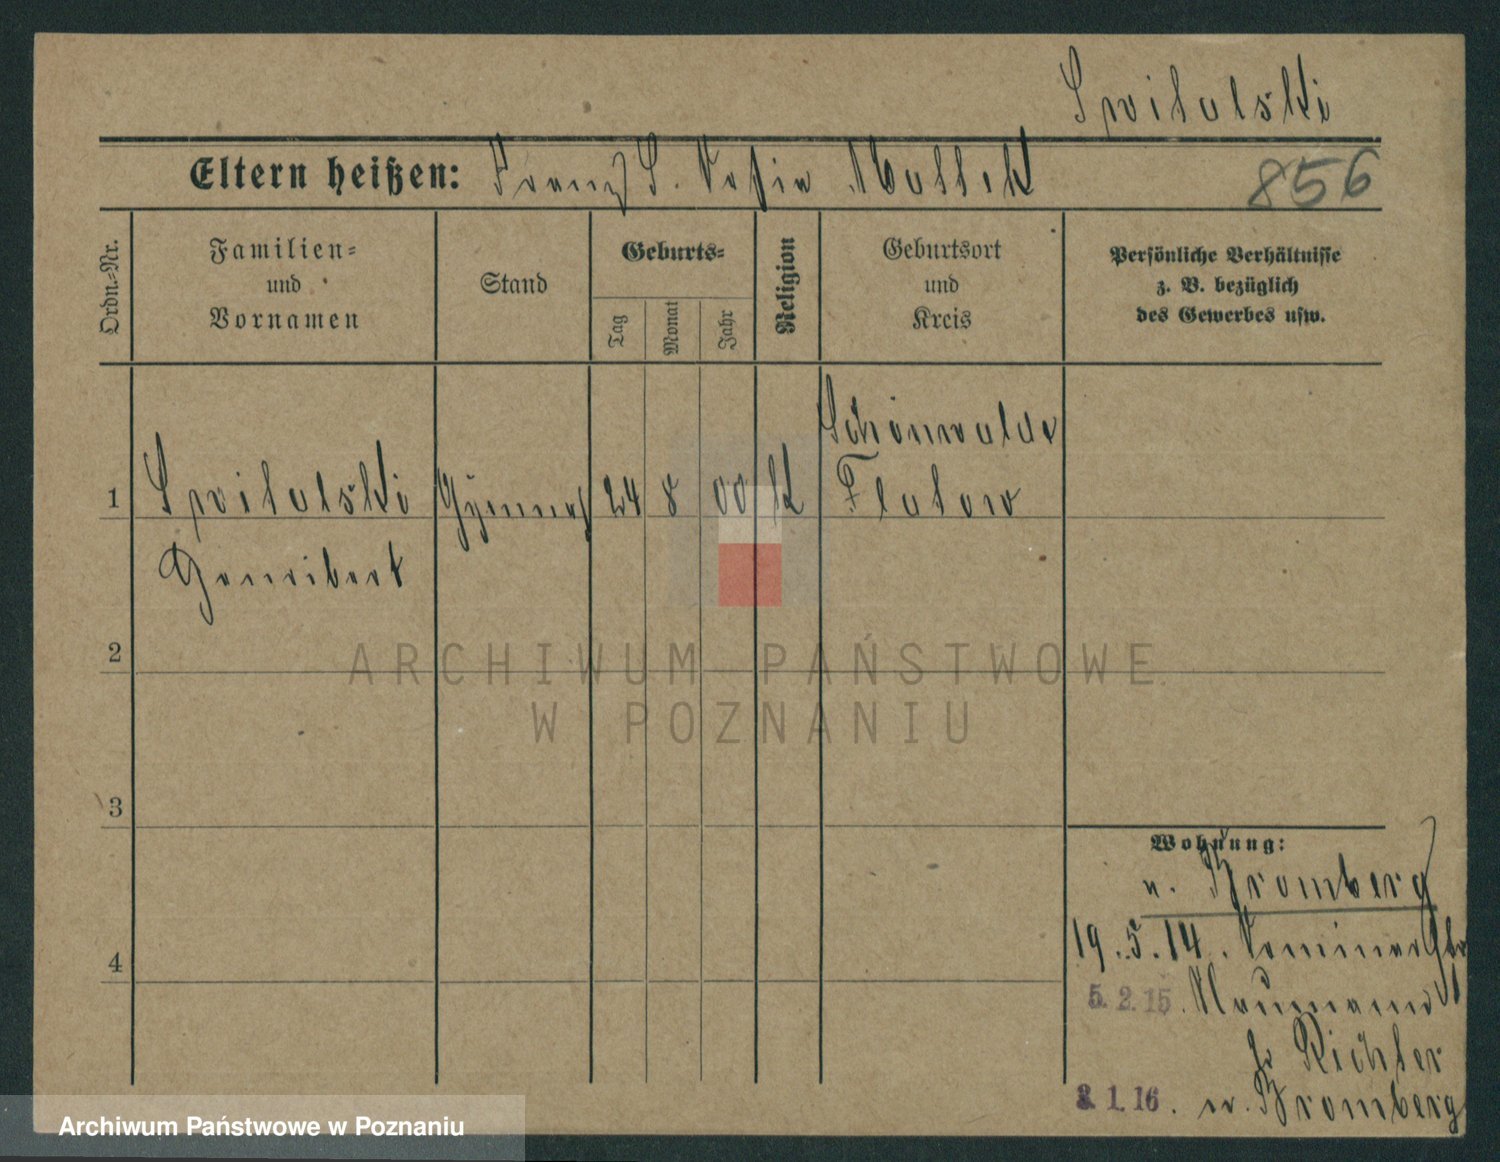 Switalski
Eltern heißen: Franz S. Sofia Mallek
856
Ordn.-Nr.
Familien-
und
Vornamen
Stand
Geburts-
Tag
Monat
Jahr
Religion
Geburtsort
und
Kreis
Persönliche Verhältnisse
z. B. bezüglich
des Gewerbes usw.
Schönwalde
1 Switalski Gymnas 24 8 00 K Flatow
2
3
4
Wohnung:
n. Bromberg
19.5.14. Seminar
5.2.15. Naumann
b. Richter
1.16. n. Bromberg
ARCHIWUM PAŃSTWOWE
W POZNANIU
Archiwum Państwowe w Poznaniu